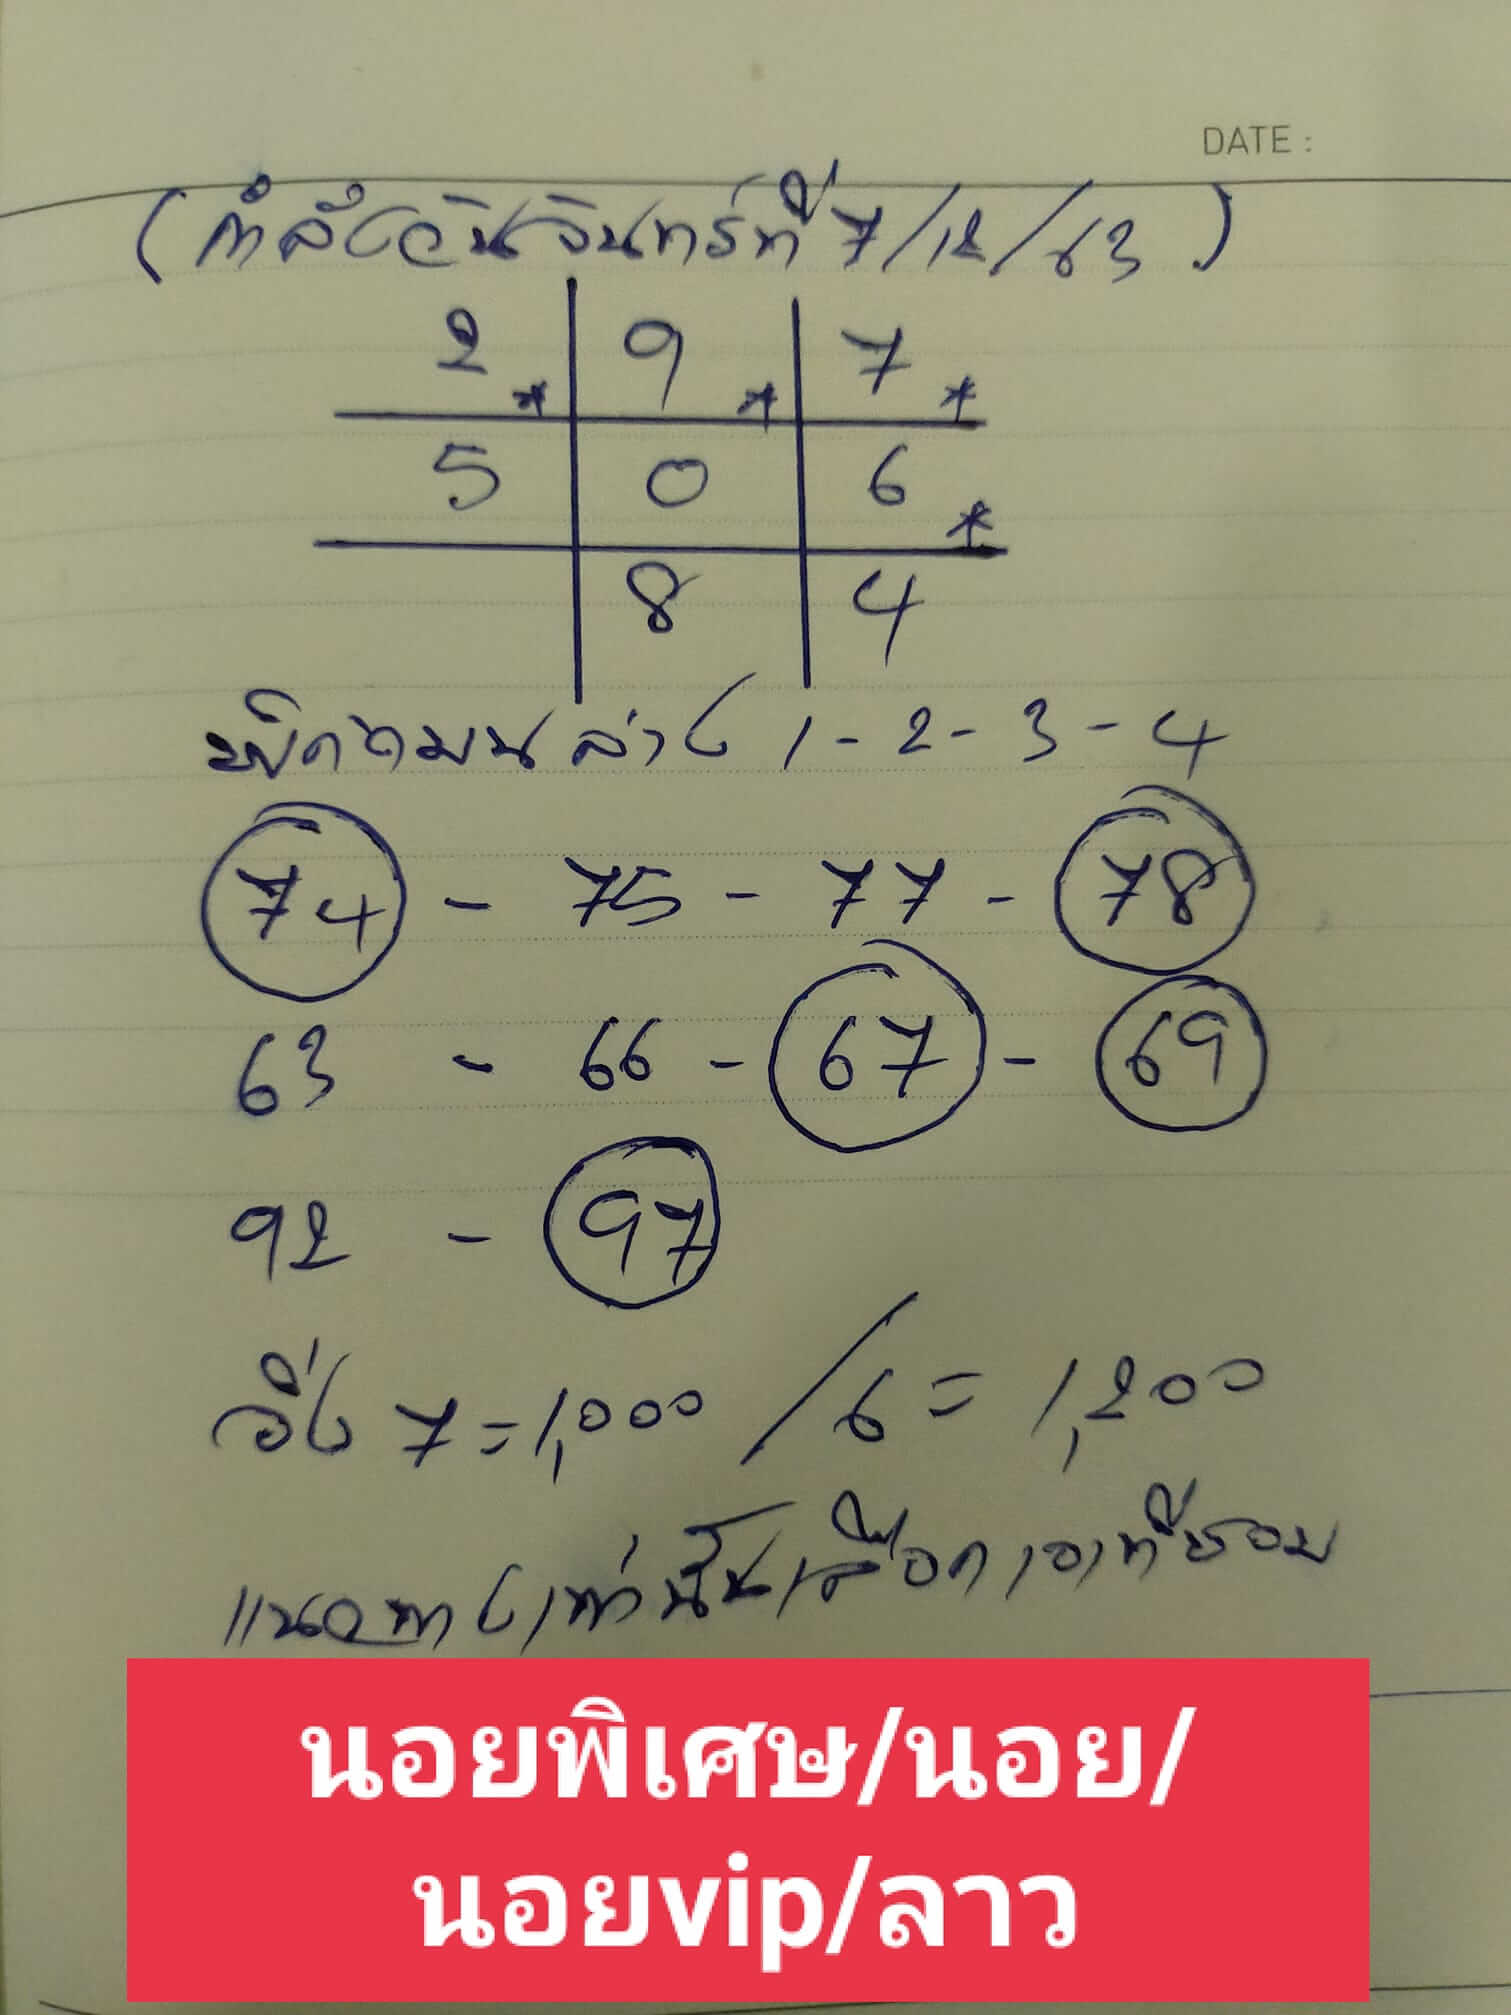 DATE :
(กำลังวันจันทร์ที่ 7/12/63)
2* 9* 7*
5 0 6*
8 4
พิกัดบนล่าง 1-2-3-4
74 - 75 - 77 - 78
63 - 66 - 67 - 69
92 - 97
วิ่ง 7=1,000 / 6=1,200
แนวทางเท่านั้นเลือกเอาที่ชอบ
นอยพิเศษ/นอย/
นอยvip/ลาว